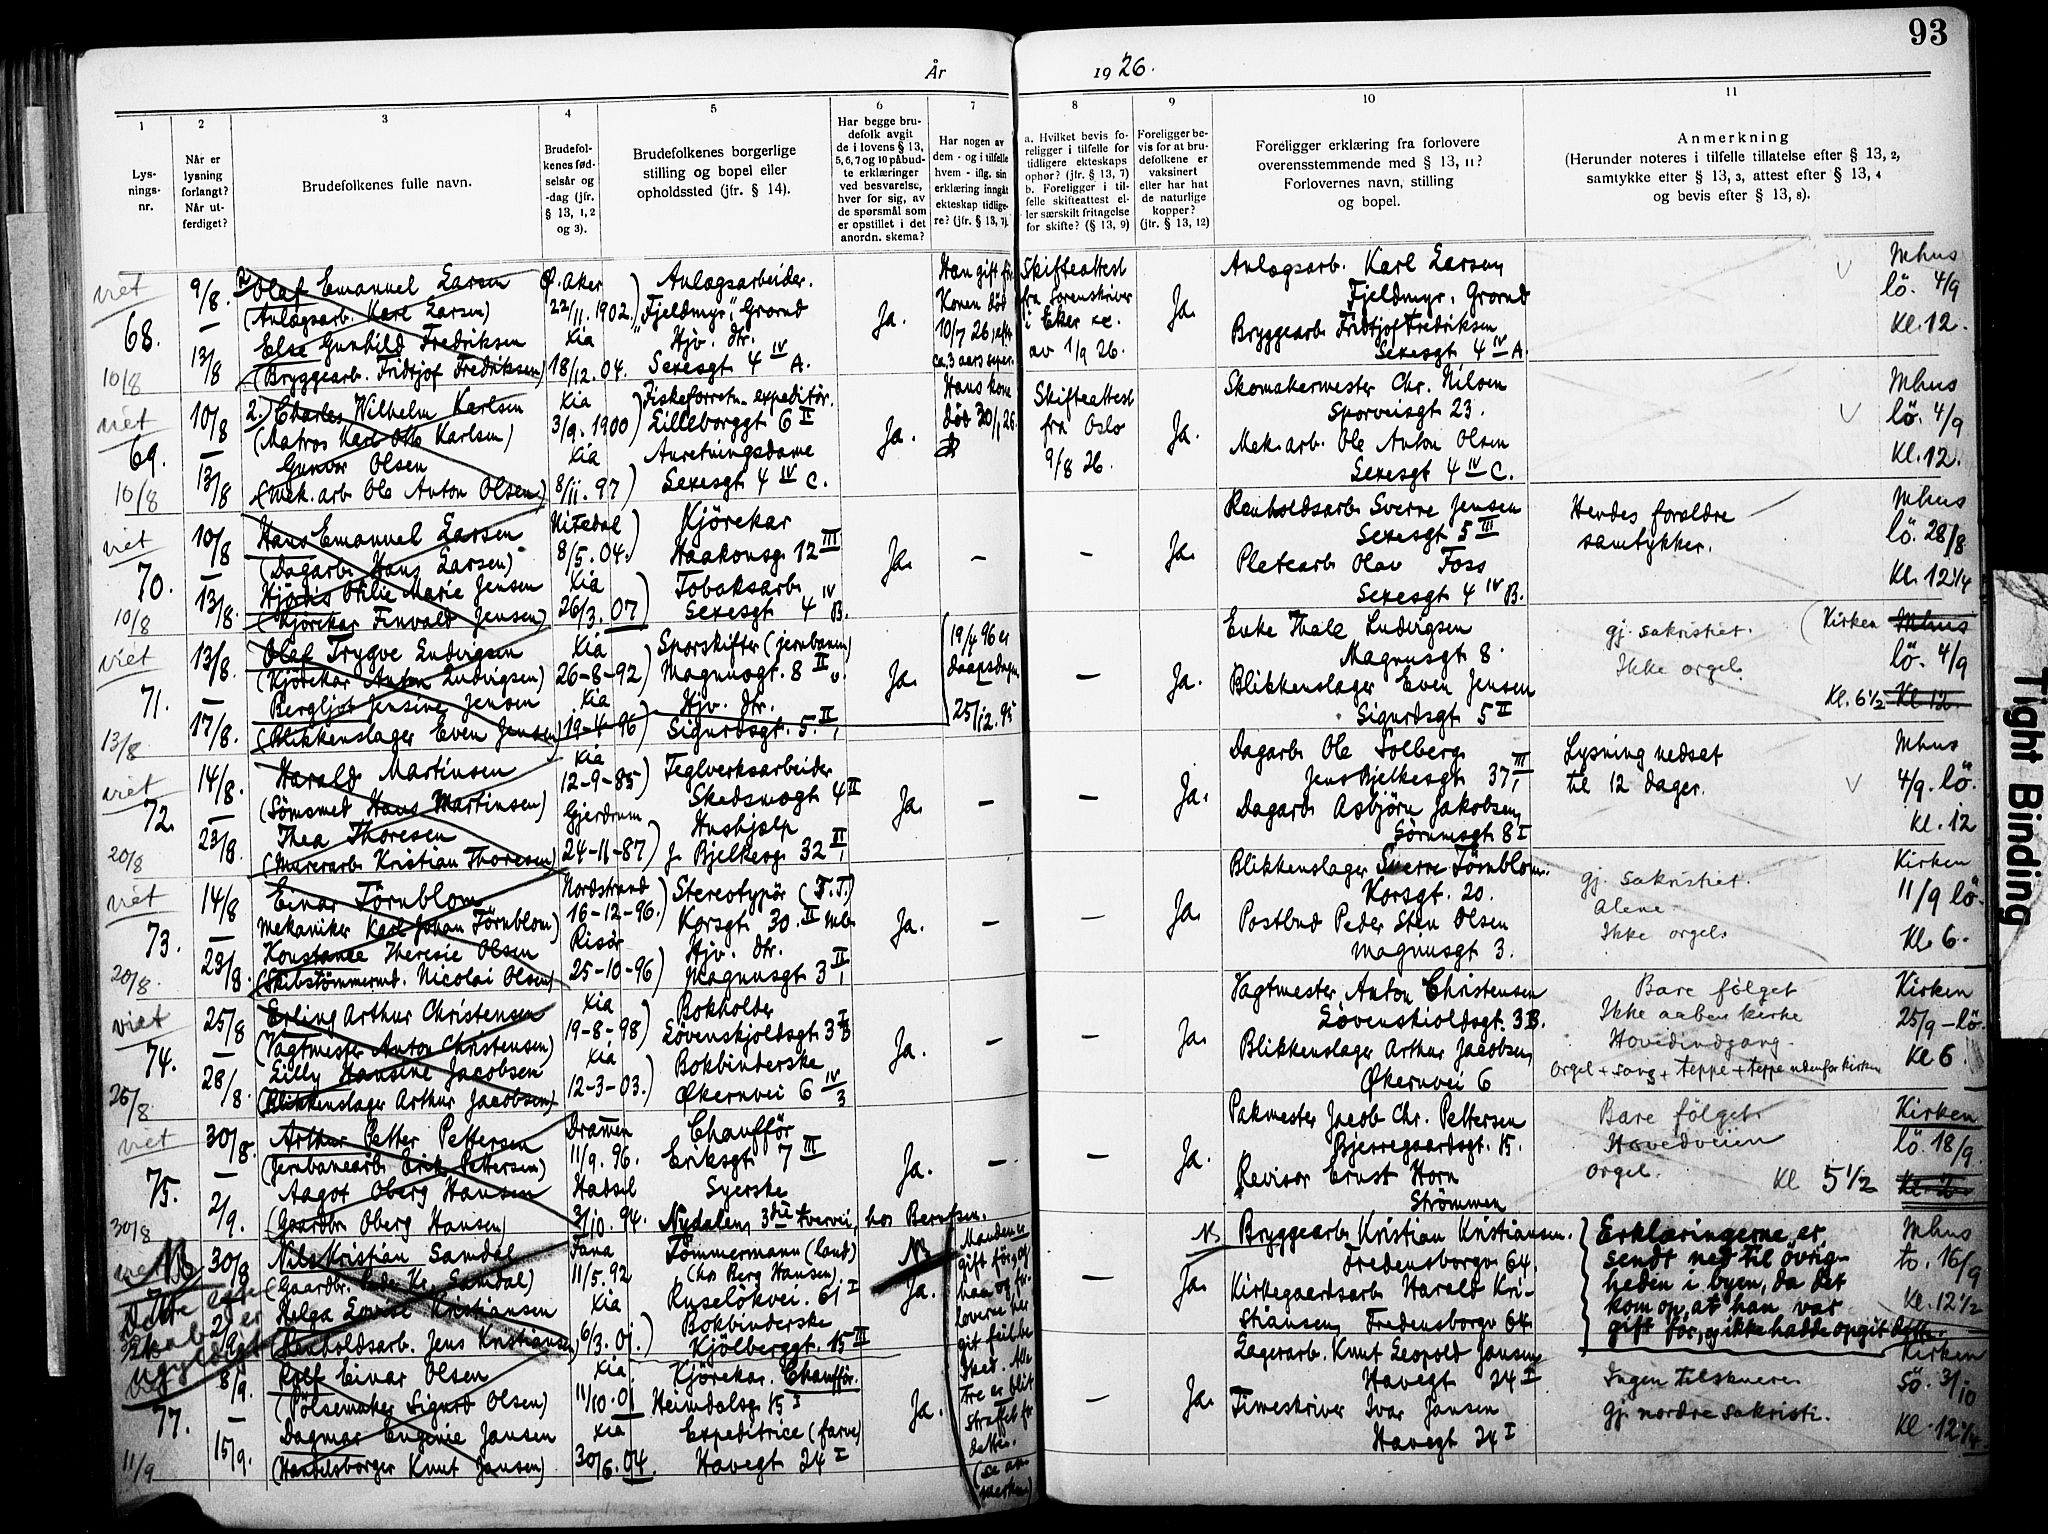 93
År 1926.
1
2
3
4
5
6
7
8
9
10
11
Lys-
nings-
nr.
Når er
lysning
forlangt?
Når ut-
ferdiget?
Brudefolkenes fulle navn.
Brudefol-
kenes fød-
selsår og
-dag (jfr.
§ 13, 1, 2
og 3).
Brudefolkenes borgerlige
stilling og bopel eller
opholdssted (jfr. § 14).
Har begge bru-
defolk avgit
de i lovens § 13,
5, 6, 7 og 10 påbud-
te erklæringer
ved besvarelse,
hver for sig, av
de spørsmål som
er opstillet i det
anordn. skema?
Har nogen av
dem - og i tilfelle
hvem - iflg. sin
erklæring inngått
ekteskap tidlige-
re? (jfr. § 13, 7).
a. Hvilket bevis fo-
religger i tilfelle for
tidligere ekteskaps
ophør? (jfr. § 13, 7)
b. Foreligger i til-
felle skifteattest el-
ler særskilt fritagelse
for skifte? (§ 13, 9)
Foreligger be-
vis for at bru-
defolkene er
vaksinert
eller har hat
de naturlige
kopper?
(jfr. § 13, 12)
Foreligger erklæring fra forlovere
overensstemmende med § 13, 11?
Forlovernes navn, stilling
og bopel.
Anmerkning
(Herunder noteres i tilfelle tillatelse efter § 13, 2,
samtykke efter § 13, 3, attest efter § 13, 4
og bevis efter § 13, 8).
viet
68.
10/8
9/8.
–
13/8
Olaf Emanuel Larsen
(Anlægsarb. Karl Larsen)
Else Gunhild Fredriksen
(Bryggearb. Fridtjof Fredriksen)
Ø. Aker
22/11. 1902.)
Kia
18/12. 04.
Anlægsarbeider.
"Fjeldmyr", Grorud
Hjv. dtr.
Sexesgt 4 IV A.
Ja.
Han gift før
Konen død
10/7 26, eft.
ca. 3 aars separ.
Skifteattest
fra Sorenskriver
i Eker &c.
av 1/9 26.
Ja.
Anlægsarb. Karl Larsen,
Fjeldmyr, Grorud
Bryggearb. Fridtjof Fredriksen,
Sexesgt 4 IV A.
Mhus
lö. 4/9
Kl. 12.
viet
69.
10/8
10/8
–
13/8
2. Charles Wilhelm Karlsen
(Matros Karl Otto Karlsen)
Gunvor Olsen
(Mek. arb. Ole Anton Olsen)
Kia
3/9. 1900)
Kia
8/11. 97)
Fiskeforretn. expeditör.
Lilleborggt 6 II
Anretningsdame
Sexesgt 4 IV C.
Ja.
Hans kone
död 30/1 26.
Skifteattest
fra Oslo
9/8 26.
Ja.
Skomakermester Chr. Nilsen
Sporveisgt 23.
Mek. arb. Ole Anton Olsen
Sexesgt 4 IV C.
Mhus
lö. 4/9
Kl. 12.
viet
70.
10/8
10/8
–
13/8.
Hans Emanuel Larsen
(Dagarb. Hans Larsen)
Hjördis Othilie Marie Jensen
(Kjörekar Finvald Jensen)
Nitedal
8/5. 04.)
Kia
26/3. 07)
Kjörekar
Haakonsg. 12 III
Tobaksarb.
Sexesgt 4 IV B.
Ja.
–
–
Ja.
Renholdsarb. Sverre Jensen
Sexesgt 5 III
Pletearb. Olav Foss
Sexesgt 4 IV B.
Hendes forældre
samtykker.
Mhus
lö. 28/8
Kl. 12 1/4
viet
71.
13/8
13/8.
–
17/8.
Olaf Trygve Ludvigsen
(Kjörekar Anton Ludvigsen)
Bergljot Jensine Jensen
(Blikkenslager Even Jensen)
Kia
26-8-92)
Kia
19-4-96)
Sporskifter (jernbanen)
Magnusgt. 8 II v.
Hjv. dtr.
Sigurdsgt. 5. II,
Ja.
19/4 96 er
daapsdagen
25/12. 95
–
Ja.
Enke Thale Ludvigsen
Magnusgt 8.
Blikkenslager Even Jensen
Sigurdsgt 5 II
gj. sakristiet.
Ikke orgel.
Kirken Mhus
lö. 4/9
Kl. 6 1/2 Kl. 12.
viet
72.
20/8
14/8.
–
23/8.
Harald Martinsen
(Sömsmed Hans Martinsen)
Thea Thoresen
(Murerarb. Kristian Thoresen)
Kia
12-9-85)
Gjerdrum
24-11-87)
Teglverksarbeider
Skedsmogt 4 II
Hushjælp
J. Bjelkesg. 32 II,
Ja.
–
–
Ja.
Dagarb. Ole Solberg
Jens Bjelkesgt 37, III
Dagarb. Asbjörn Jakobsen,
Sörumsgt 8 I
Lysning nedsat
til 12 dager.
Mhus
4/9. lö.
Kl. 12
viet
73.
20/8.
14/8
–
23/8.
Einar Törnblom
(Mekaniker Karl Johan Törnblom)
Konstance Theresie Olsen
(Skibstömmermd. Nicolai Olsen)
Nordstrand
16-12-96.)
Risör
25-10-96)
Stereotypör (T.T.)
Korsgt. 30. II Mb.
Hjv. dtr.
Magnusgt 3 II,
Ja.
–
–
Ja.
Blikkenslager Sverre Törnblom.
Korsgt. 20.
Postbud Peder Sten Olsen
Magnusgt 3.
gj. sakristiet.
Alene.
Ikke orgel.
Kirken
11/9 lö.
Kl. 6.
viet
74.
26/8
25/8
–
28/8.
Erling Arthur Christensen
(Vagtmester Anton Christensen)
Lilly Hansine Jacobsen
(Blikkenslager Arthur Jacobsen)
Kia
19-8-98)
Kia
12-3-03.)
Bokholder
Lövenskjoldsgt. 3 I B
Bokbinderske
Økernvei 6 IV 3
Ja.
–
–
Ja.
Vagtmester Anton Christensen
Lövenskioldsgt. 3 B.
Blikkenslager Arthur Jacobsen,
Økernvei 6
Bare fölget
Ikke aaben kirke
Hovedindgang.
Orgel + sang + teppe + teppe utenfor kirken
Kirken
25/9 – lö.
Kl 6.
viet
75.
30/8
30/8.
–
2/9.
Arthur Petter Pettersen
(Jernbanearb. Erik Pettersen)
Aagot Oberg Hansen
(Gaardbr. Oberg Hansen)
Drammen
11/9. 96.
Hadsel
3/10. 94.
Chaufför
Eriksgt. 7 III
Syerske
Nydalens 3die tvervei, hos Berntsen.
Ja.
–
–
Ja.
Pakmester Jacob Chr. Pettersen
Bjerregaardsgt. 15.
Revisor Ernst Horn
Strömmen
Bare fölget.
Hovedveien
Orgel.
Kl 5 1/2
Kirken
lö. 18/9
viet
NB
76.
Dette
ekteskab er
ugyldigt
30/8
2/9
Nils Kristian Samdal
(Gaardbr. Peder Kr. Samdal)
Helga Lovise Kristiansen
(Renholdsarb. Jens Kristiansen)
Fana
11/5. 92
Kia
6/3. 01.)
Tömmermann (land)
(hos Berg Hansen)
Ruselökvei. 61 I
Bokbinderske
Kjölberggt. 15 III
NB
Ja.
Manden er
gift för, og
han og for-
loverne har
git feil be-
sked. Alle
Tre er blit
straffet for
dette.
(se an-
merkn.)
–
NB
Ja.
Bryggearb. Kristian Kristiansen.
Fredensborgv. 64.
Kirkegaardsarb. Harald Kri-
stiansen, Fredensborgv 64.
Erklæringerne er
sendt ned til övrig-
heden i byen, da det
kom op, at han var
gift för, og ikke hadde opgit dette.
Mhus
to. 16/9
Kl. 12 1/2
viet
77.
11/9
8/9.
–
15/9.
Rolf Einar Olsen
(Pölsemaker Sigurd Olsen)
Dagmar Eugenie Jansen
(Handelsborger Knut Jansen)
Kia.
11/10. 01
Kia
30/6. 04.
Kjörekar. Chaufför.
Heimdalsg. 15 I
Expeditrice (farve)
Havegt 24 I
Ja.
–
Ja.
Lagerarb. Knut Leopold Jansen
Havegt 24 I
Timeskriver Ivar Jansen
Havegt 24 I
Ingen tilskuere.
gj. nordre sakristi.
Kirken
Sö. 3/10
Kl. 12 1/4
Tight Binding